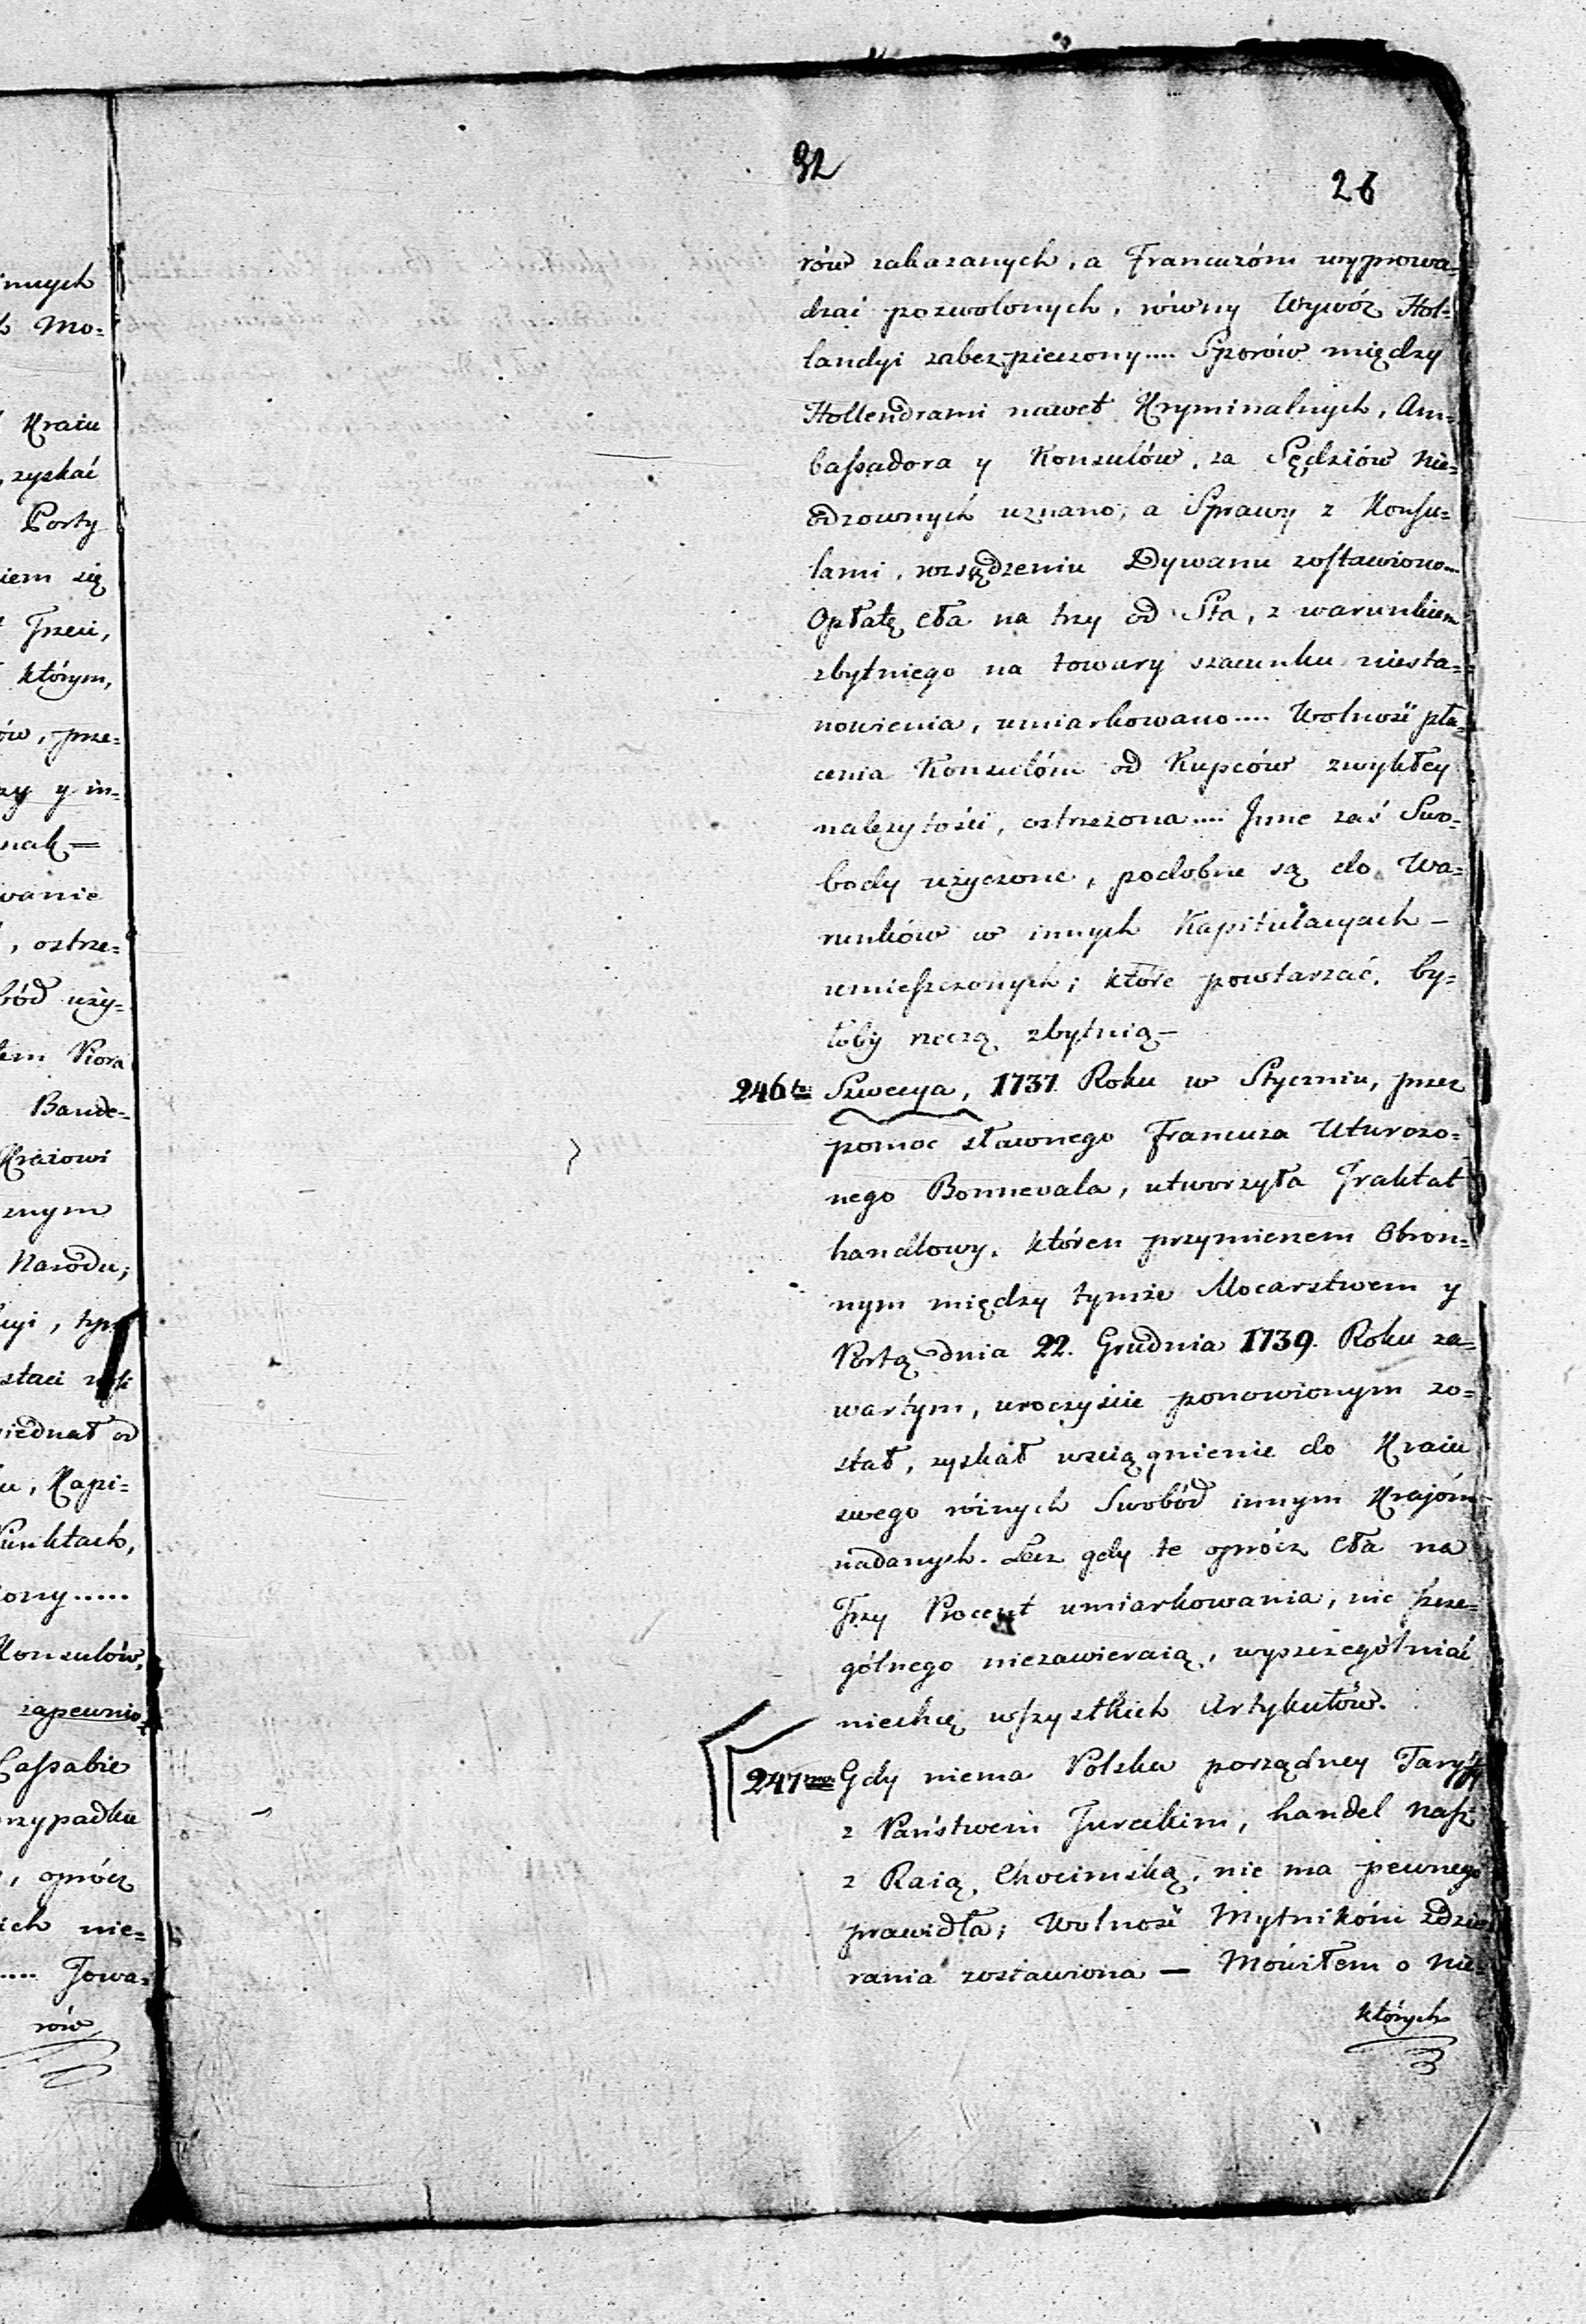 innych
Mo-
Kraiu
, zyskać
Porty
iem się
Trzeci,
którym,
ów, prze-
zy y in-
nak =
wanie
, ostrze-
bód uży-
łem Piora
Bande-
Krajowi
znym
Narodu;
staci
iednał od
u, Kapi-
Punktach,
ony .....
Konsulów,
zapewnio-
Cassabie
rzypadku
, oprócz
ich nie-
.... Towa-
rów
32
26
rów zakazanych, a Francuzóm wyprowa-
dzać pozwolonych, równy Wywóz Hol-
landyi zabezpieczony .... Sporów między
Hollendrami nawet Kryminalnych, Am-
bassadora y Konsulów, za Sędziów nie-
odzownych uznano; a Sprawy z Konsu-
lami, rozsądzeniu Dywanu zostawiono ...
Opłatę cła na trzy od Sta, z warunkiem
zbytniego na towary szacunku niesta-
nowienia, umiarkowano .... Wolność pła-
cenia Konsulóm od Kupców zwykłey
należytości, ostrzeżona .... Jnne zaś Swo-
body użyczone, podobne są do Wa-
runków w innych Kapitulacyach -
umieszczonych; które powtarzać, by-
łoby rzeczą zbytnią -
246to Szwecya, 1737 Roku w Styczniu, przez
pomoc sławnego Francuza Uturczo-
nego Bonnevala, utworzyła Traktat
handlowy, któren przymierzem Obron-
nym między tymże Mocarstwem y
Portą dnia 22. Grudnia 1739. Roku za-
wartym, uroczyście ponowionym zo-
stał, zyskał wściągnienie do Kraiu
swego różnych Swobód innym Krajóm
nadanych. Lecz gdy te oprócz Cła na
Trzy Procent umiarkowania, nic szcze-
gólnego niezawieraią, wyszczególniać
niechcę wszystkich Artykułów.
247mo Gdy niema Polska porządney Taryffy
z Państwem Tureckim, handel nasz
z Raią Chocimską, nie ma pewnego
prawidła; Wolność Mytnikóm zdzie-
rania zostawiona — Mówiłem o nie-
których